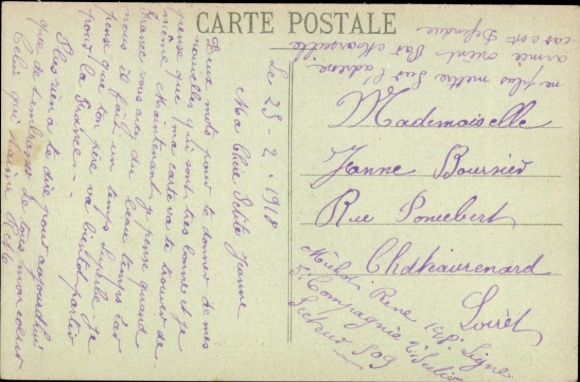 CARTE POSTALE
Le 25-2-1918
Ma Chère Petite Jeanne
Deux mots pour te donner de mes
nouvelles qui sont très bonnes et je
pense que ma carte va te trouver de
même Maintenant je pense quand
France vous avez du beau temps car
nous il fait un temps superbe Je
pense que ton père va bientôt partir
pour la France.
Plus rien a te dire pour aujourdhui
que de tembrasser de tous mon coeur
Celui qui taime René
ne plus mettre sur l'adresse
armée orient par Marseille
car c'est Defendue
Mademoiselle
Jeanne Boursier
Rue
Chateaurenard
Loiret
René Ligne
5e Compagnie
Secteur 509